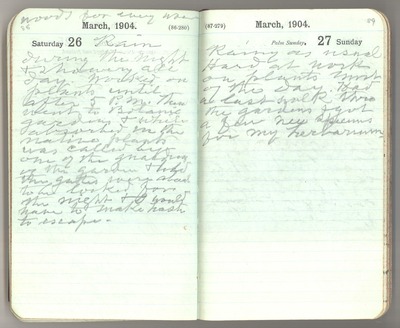 woods for every
March, 1904.
(86-280)
Saturday 26 Rain
during the night
& showery all
day. Worked on
plants until
after 5 P.M. then
went to Botanic
gardens & while
absorbed in the
native plants
was called by
one of the guardians
of the garden & told
the gates were about
to be locked for
the night & I would
have to make haste
to escape.
89
(87-279)
March, 1904.
Palm Sunday. 27 Sunday
Raining as usual
Hard at work
on plants most
of the day. Had
a last walk thro
the gardens & got
a few new species
for my herbarium